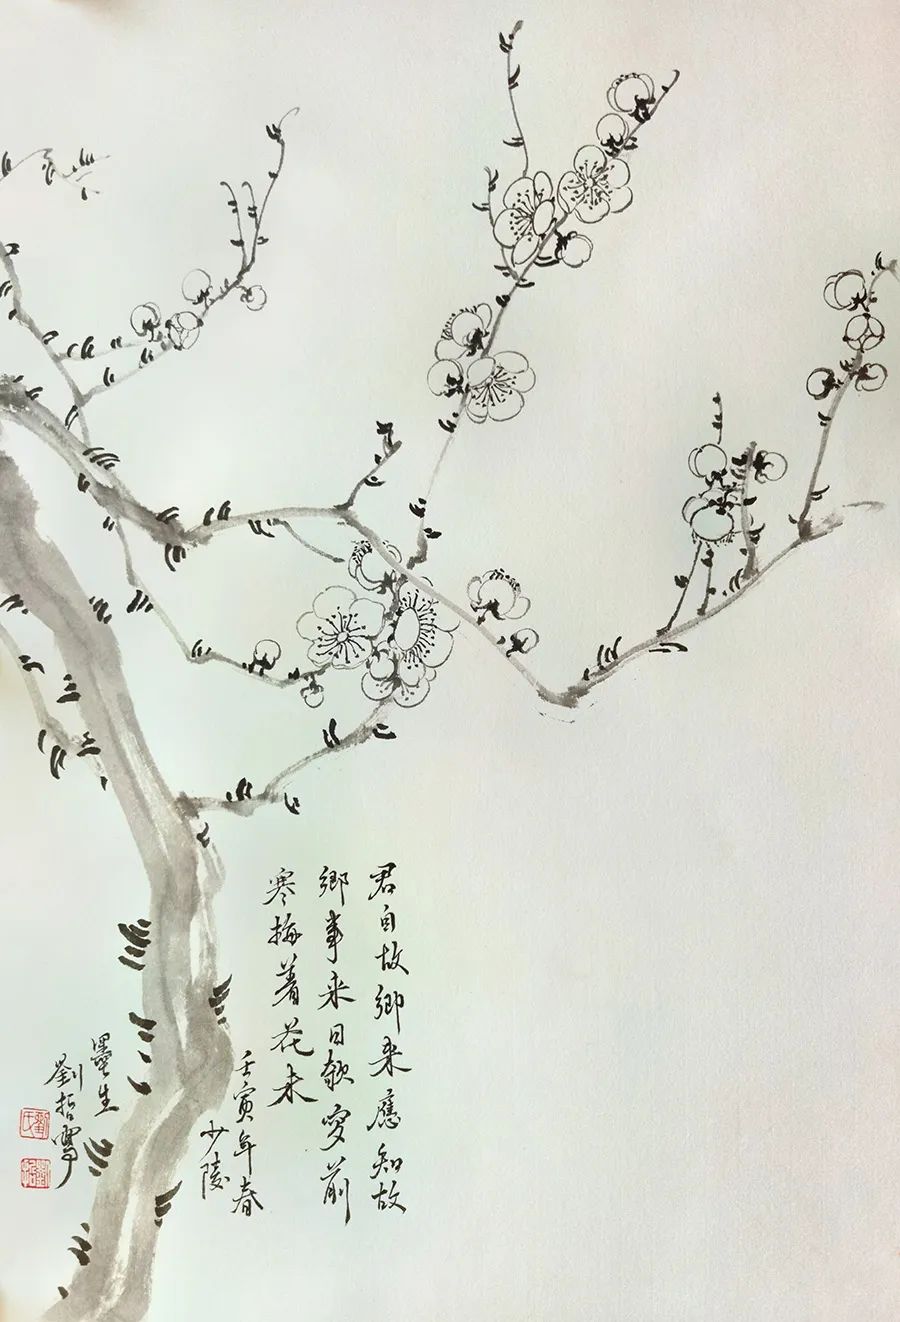 君自故鄉来應知故
鄉事来日欹窓前
寒梅着花未
壬寅年春
少陵
墨生
劉哲寧